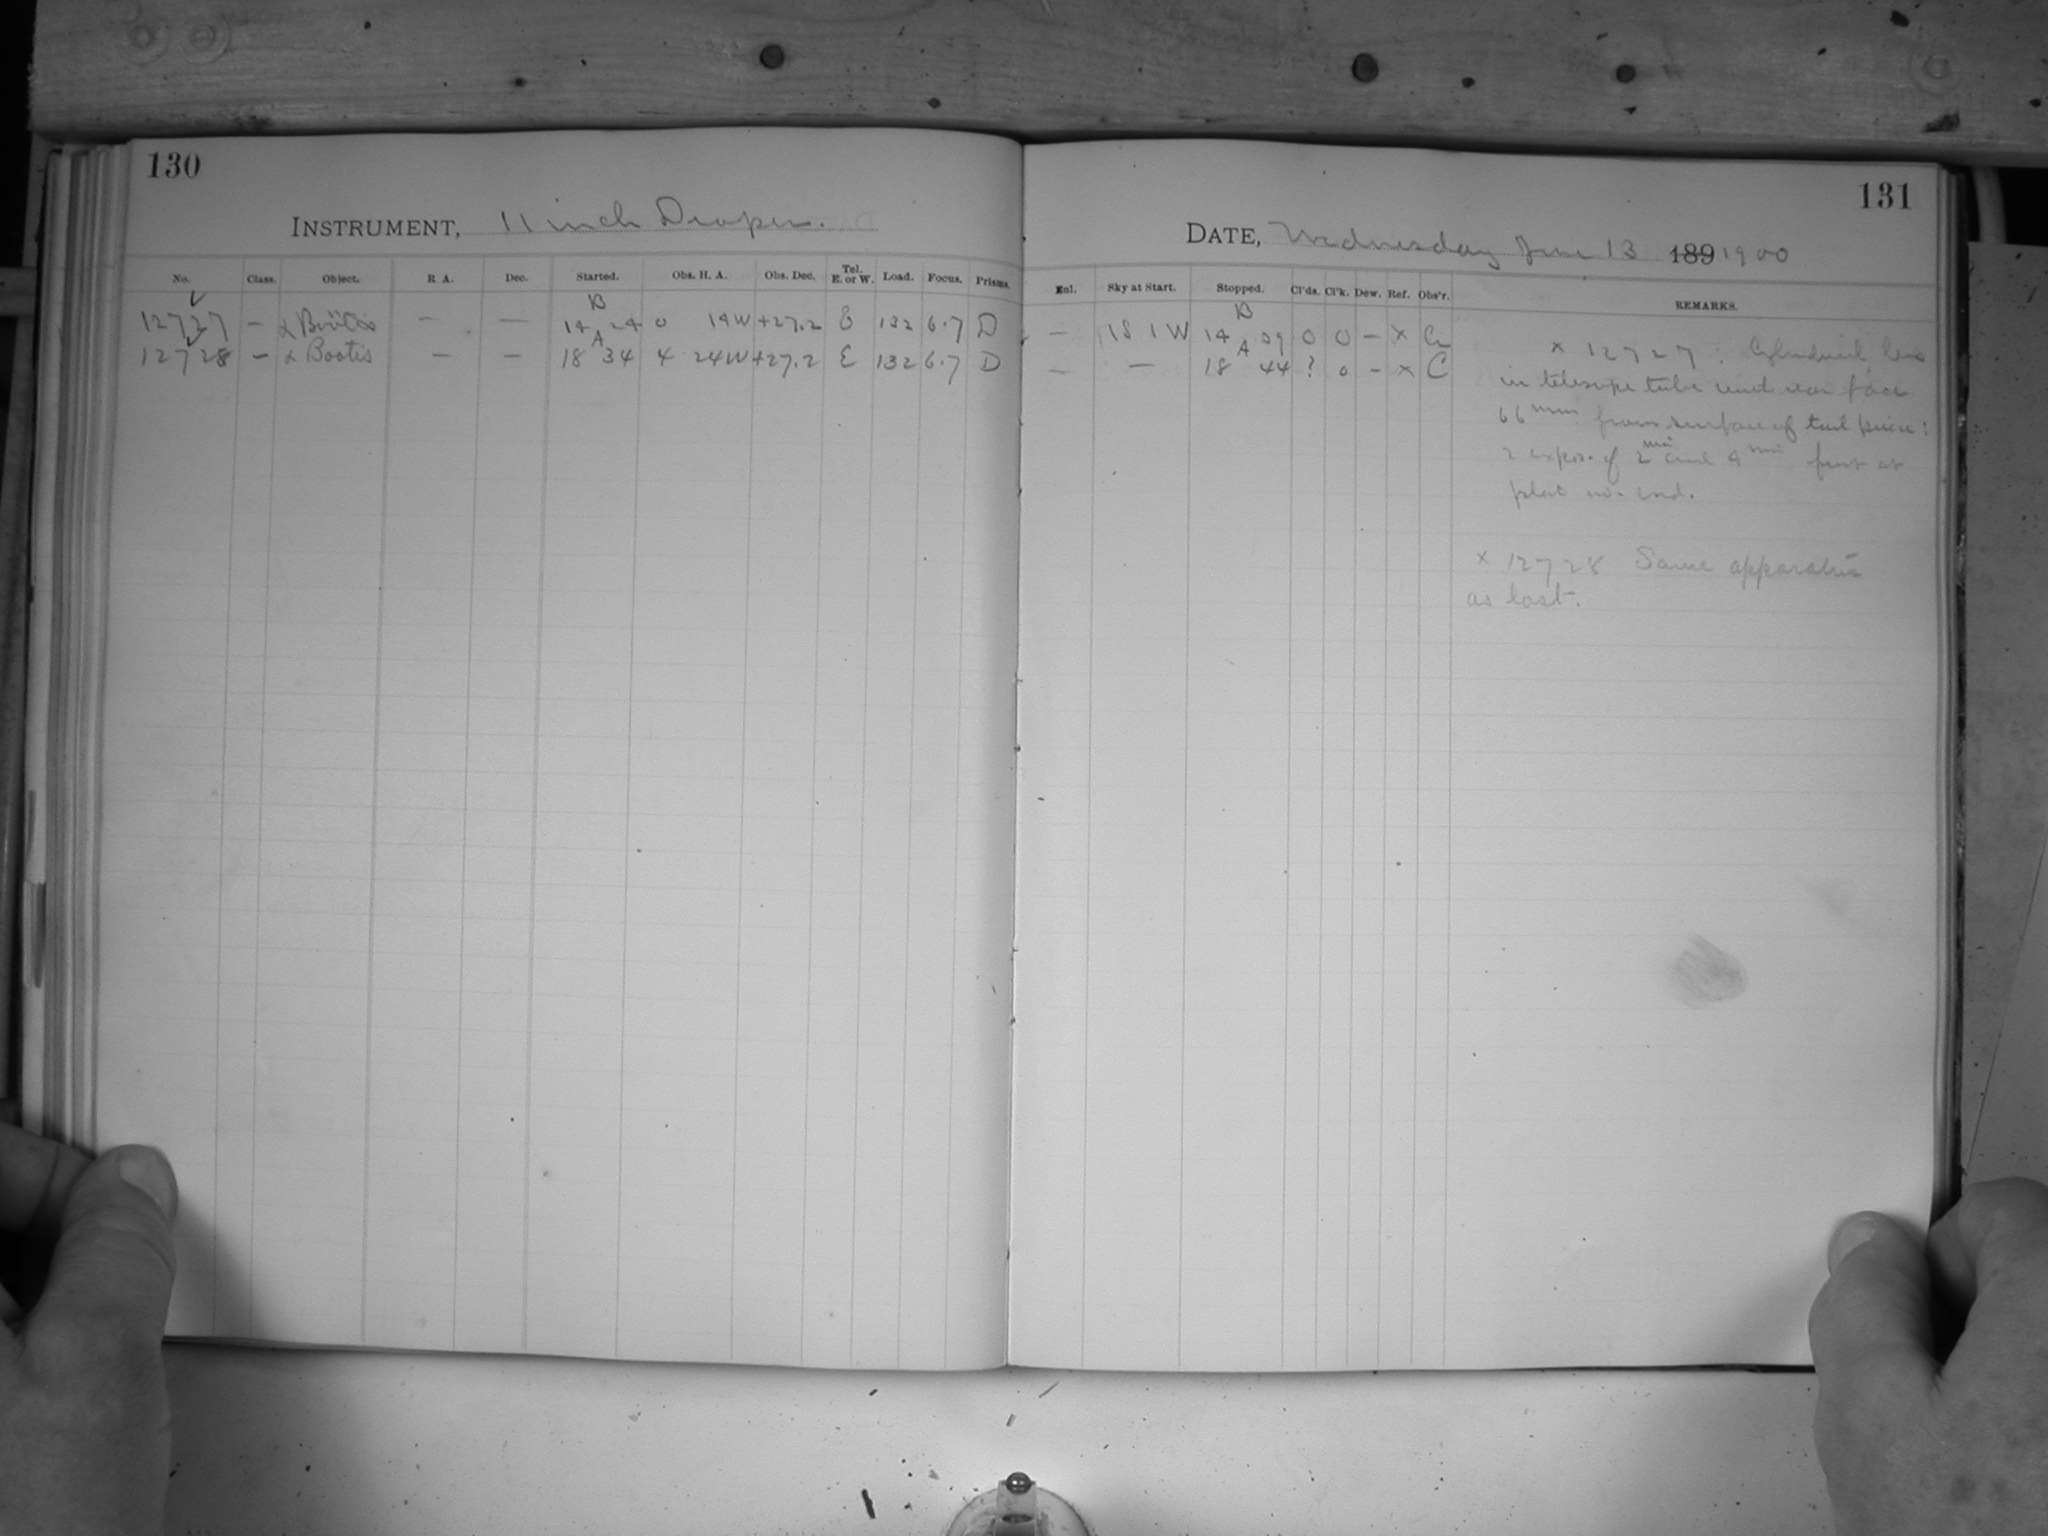 130
INSTRUMENT, 11 inch Draper.
No. Class. Object. R A. Dec. Started. Obs. H. A. Obs. Dec. Tel. E. or W. Load. Focus. Prisms.
B
12727 — α Boötis — — 14 24 0 14W +27.2 E 132 6.7 D
A
12728 — α Bootis — — 18 34 4 24W +27.2 E 132 6.7 D
131
DATE, Wednesday June 13 189 1900
Enl. Sky at Start. Stopped. Cl'ds. Cl'k. Dew. Ref. Obs'r. REMARKS.
B
— 1S 1W 14 39 0 0 — x
A
— — 18 44 ? 0 — x C
x 12727 : Cylindrical lens
in telescope tube rear face
66 mm from surface of tail piece :
2 expos. of 2 min and 4 min first at
plate no. end.
x 12728 Same apparatus
as last.